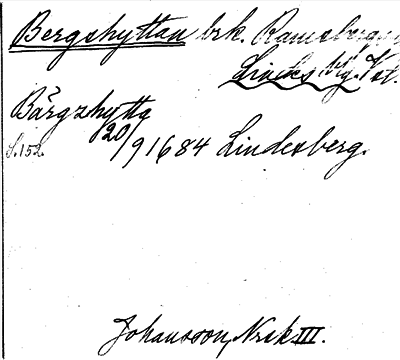 Bergshyttan brk. Ramsbergs
Lindes bg. Vst.
Bärgzhytta
S.152. 20/9 1684 Lindesberg.
Johansson, Nrsk III.